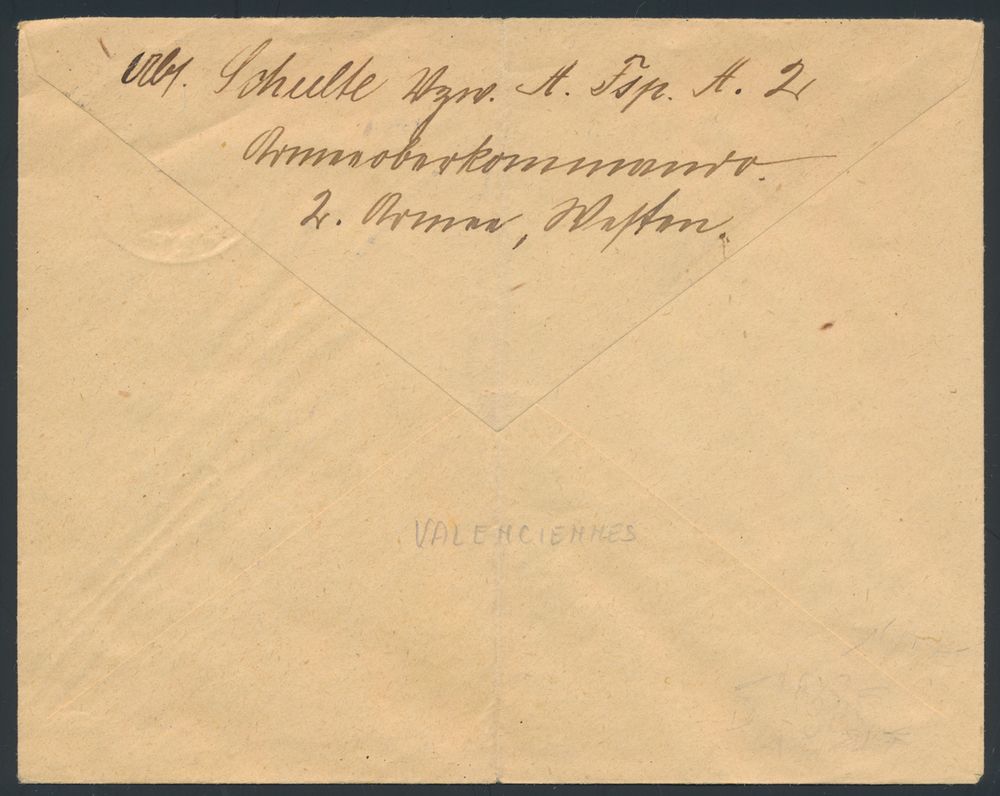 Abs. Schulte Vzw. A. Fsp. A. 2
Armeeoberkommando.
2. Armee, Westen.
VALENCIENNES